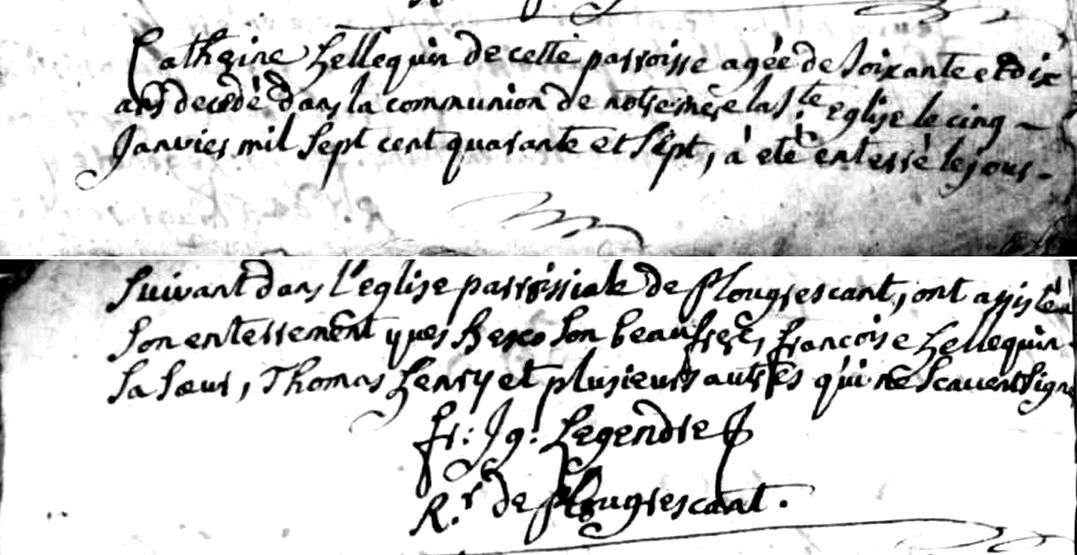 Catherine Hellequin de cette parroisse agée de soixante et dix
ans decedé dans la communion de notre mère la Ste eglise le cinq
Janvier mil sept cent quarante et sept, à eté enterré le jour
suivant dans l'eglise parroissiale de Plougrescant, ont assisté
son enterrement yves son beaufrere, francoise hellequin
sa sœur, Thomas henry et plusieurs autres qui ne scavent sign
fr: Ig: Legendre
R.r de Plougrescant.